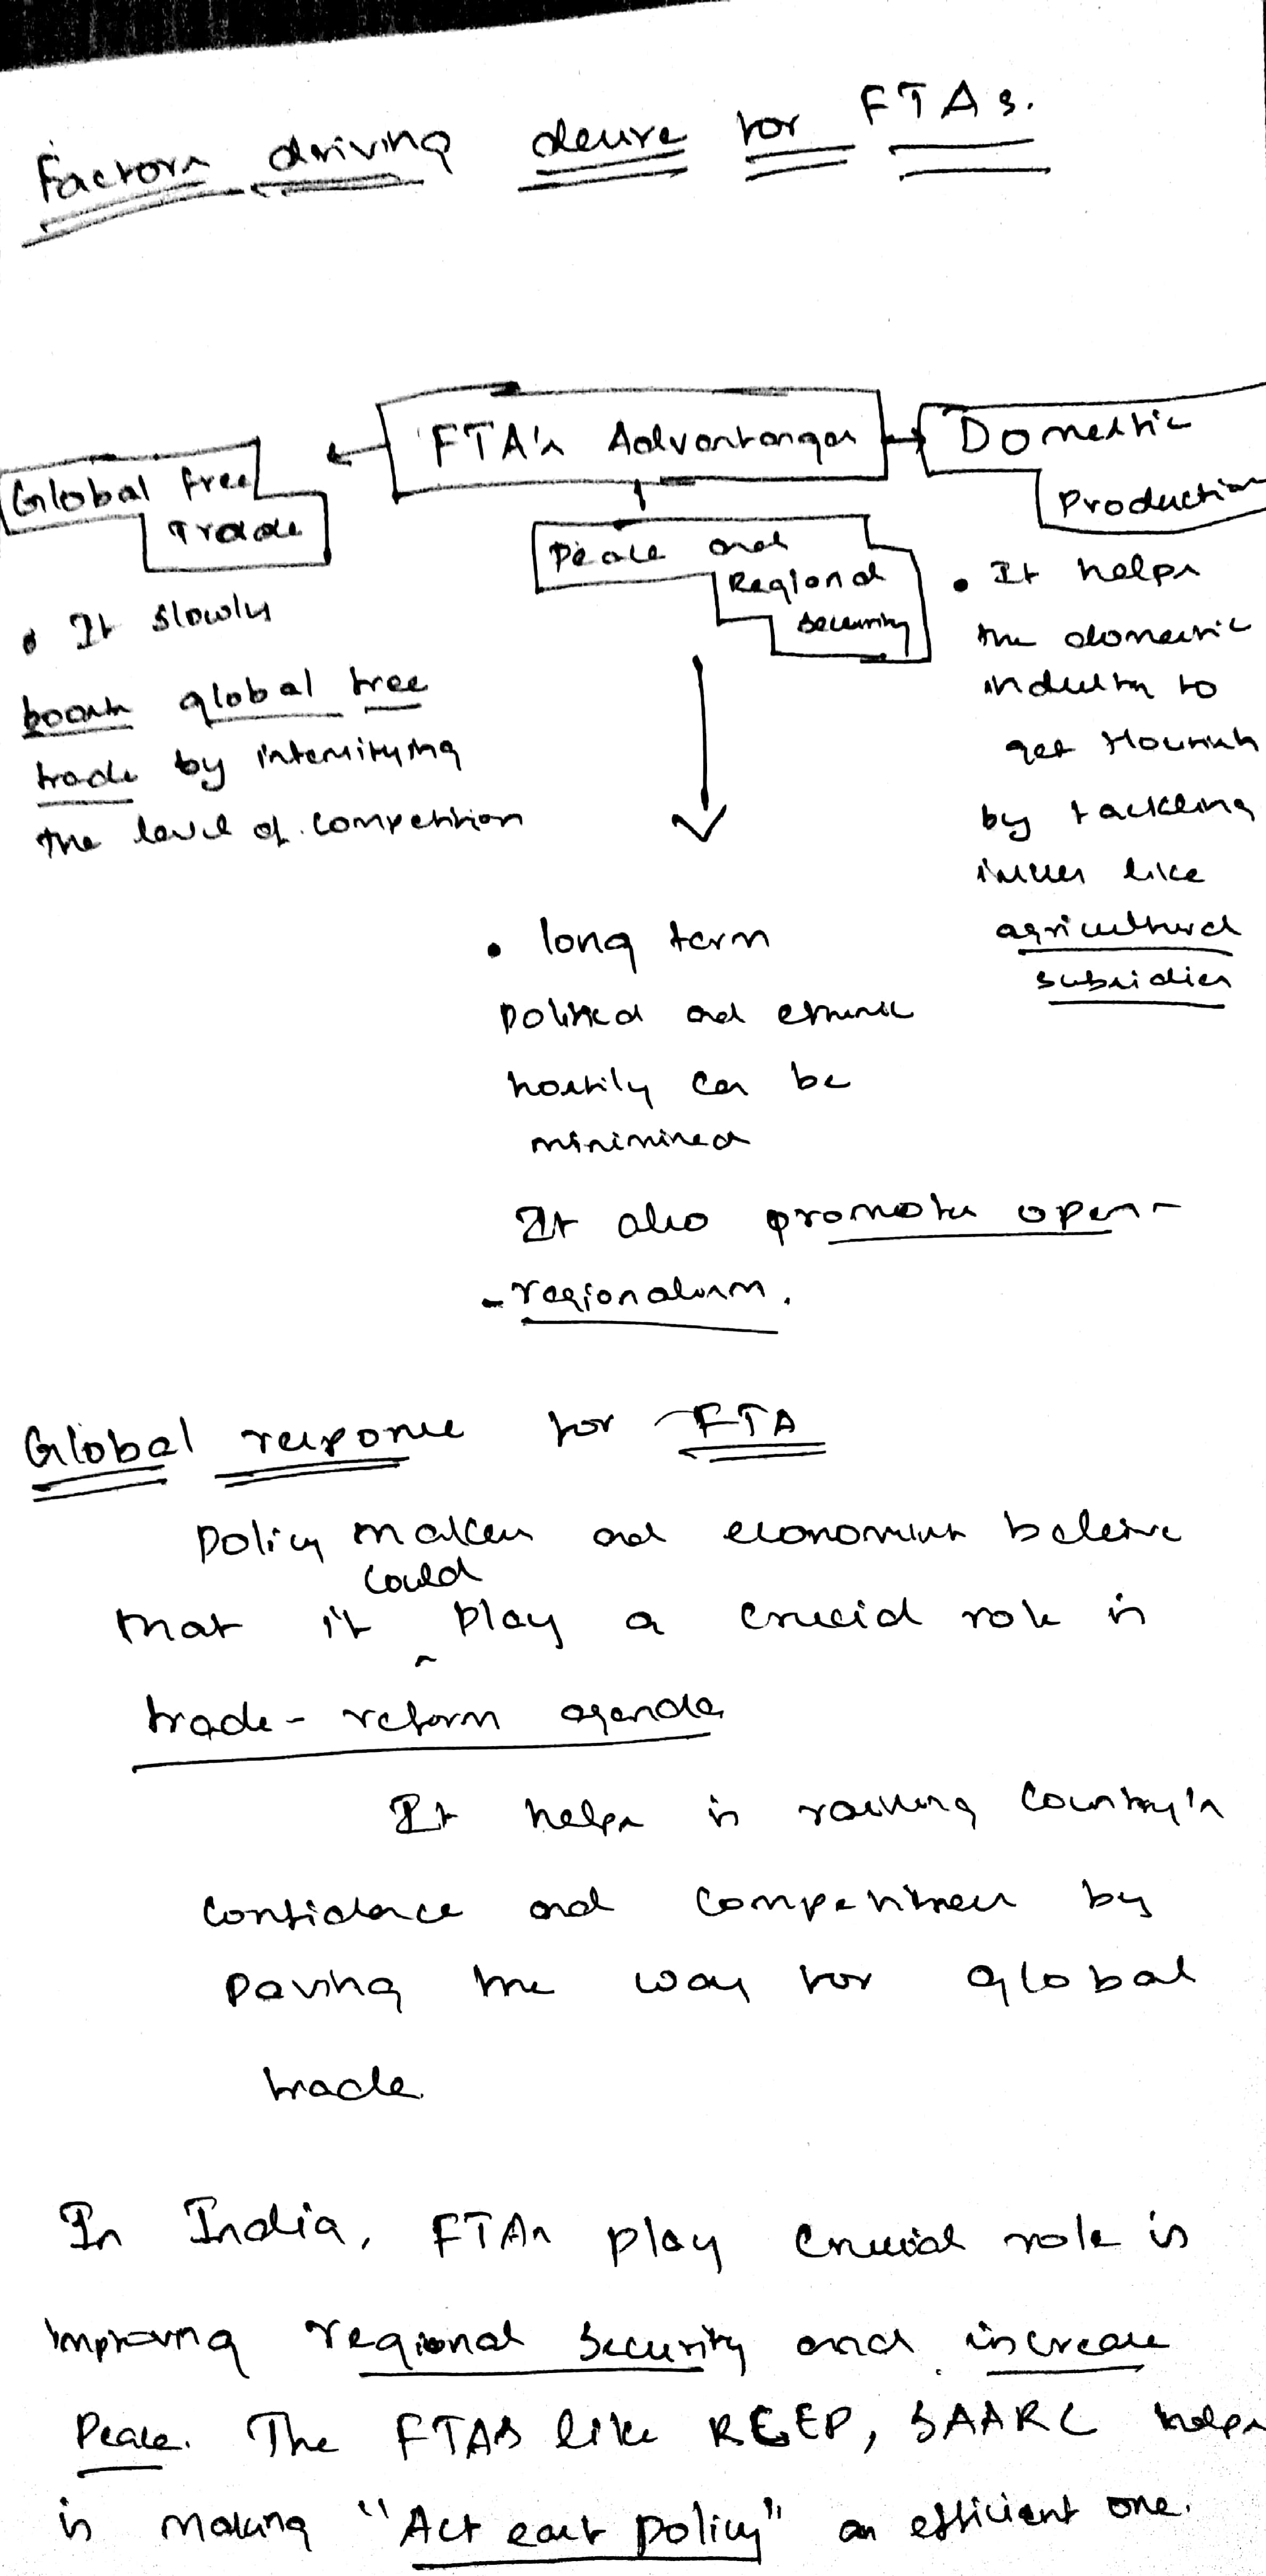 Factors driving desire for FTAs.
FTA's Advantanges
Global free
Trade
Domestic
Production
Peace and
Regional
Security
• It slowly
boosts global free
trade by intensifying
the level of competition
• It helps
the domestic
industry to
get flourish
by tackling
issues like
agricultural
subsidies
• long term
political and ethnic
hostily can be
minimised
It also promotes open-
-regionalism.
Global response for FTA
Policy makers and economists beleive
could
that it ^ play a crucial role in
trade-reform agenda
It helps in raising country's
confidence and competitiven by
paving the way for global
trade.
In India, FTAs play crucial role in
improving regional security and increase
Peace. The FTAs like RCEP, SAARC helps
in making "Act east policy" an efficient one.